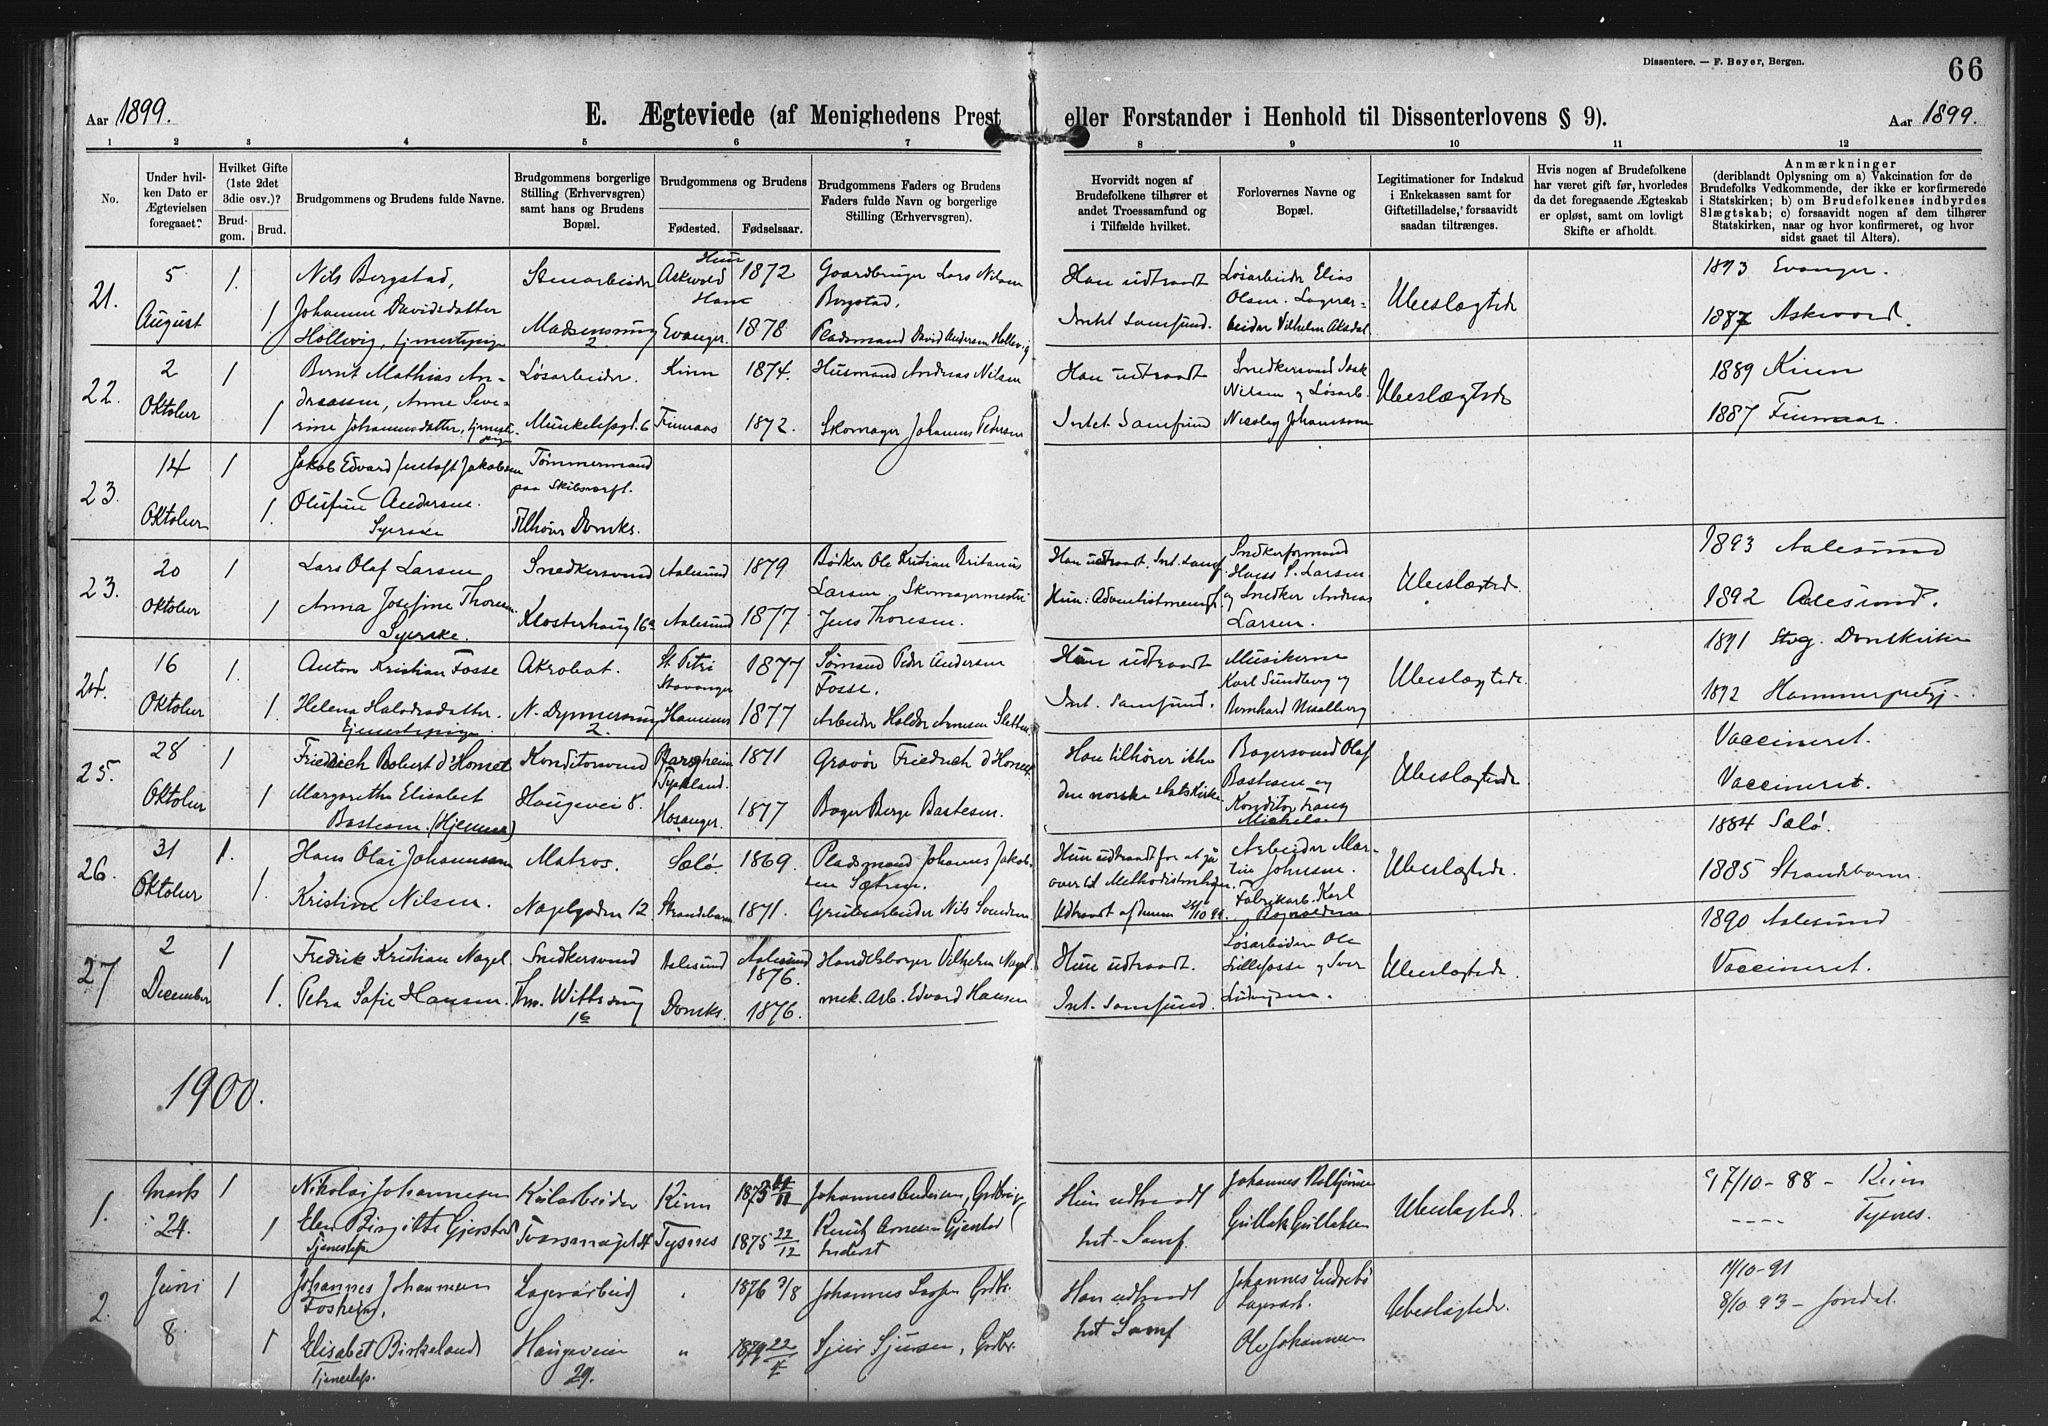 Dissentere. — F. Beyer, Bergen.
66
Aar 1899.
E. Ægteviede (af Menighedens Prest eller Forstander i Henhold til Dissenterlovens § 9).
Aar 1899.
1 2 3 4 5 6 7 8 9 10 11 12
No.
Under hvilken Dato er Ægtevielsen foregaaet?
Hvilket Gifte (1ste 2det 3die osv.)?
Brudgom. Brud.
Brudgommens og Brudens fulde Navne.
Brudgommens borgerlige Stilling (Erhvervsgren) samt hans og Brudens Bopæl.
Brudgommens og Brudens
Fødested. Fødselsaar.
Brudgommens Faders og Brudens Faders fulde Navn og borgerlige Stilling (Erhvervsgren).
Hvorvidt nogen af Brudefolkene tilhører et andet Troessamfund og i Tilfælde hvilket.
Forlovernes Navne og Bopæl.
Legitimationer for Indskud i Enkekassen samt for Giftetilladelse, forsaavidt saadan tiltrænges.
Hvis nogen af Brudefolkene har været gift før, hvorledes da det foregaaende Ægteskab er opløst, samt om lovligt Skifte er afholdt.
Anmærkninger
(deriblandt Oplysning om a) Vakcination for de Brudefolks Vedkommende, der ikke er konfirmerede i Statskirken; b) om Brudefolkenes indbyrdes Slægtskab; c) forsaavidt nogen af dem tilhører Statskirken, naar og hvor konfirmeret, og hvor sidst gaaet til Alters).
21. 5 August 1. 1.
Nils Bergstad,
Johanne Davidsdatter
Hollevig, tjenestepige
Stenarbeider
Madsensmug 2
Askvold 1872
Evanger. 1878
Gaardbruger Lars Nilsen
Bergstad,
Pladsmand David Andersen Hollevig
Han udtraadt
Intet Samfund.
Løsarbeider Elias
Olsen. Lagerar-
beider Vilhelm Aksdal
Ubeslægtede
1893 Evanger.
1887 Askvord.
22. 2 Oktober 1 1
Bernt Mathias An-
dreassen, Anne Seve-
rine Johannesdatter, tjeneste-
pige
Løsarbeider.
Munkelifsgd. 6
Kinn 1874.
Finnaas 1872.
Husmand Andreas Nilsen
Skomager Johannes Pedersen
Han udtraadt
Intet Samfund
Snedkersvend Isak
Nilsen og Løsarb.
Nicolay Johannesen
Ubeslægtede
1889 Kinn
1887 Finnaas.
23. 14 Oktober 1 1.
Jakob Edvard Gustaf Jakobsen
Olufine Andersen.
Syerske
Tømmermand
paa Skibsværft.
Domks.
23. 20 Oktober 1 1
Lars Olaf Larsen
Anna Josefine Thoresen
Syerske.
Snedkersvend
Klosterhaug 16a
Aalesund 1879
Aalesund 1877
Bødker Ole Kristian Britanius
Larsen Skomagermester
Jens Thoresen.
Han udtraadt. Int. Samf.
Hun: Adventistmenigh.
Snedkerformand
Hans S. Larsen
og Snedker Andreas
Larsen.
Ubeslægtede.
1893 Aalesund
1892 Aalesund.
24. 16 Oktober 1. 1.
Anton Kristian Fosse
Helena Haldorsdatter.
Tjenestepige
Akrobat.
N. Dypmersmug 2.
St. Petri Stavanger 1877
Hammer 1877
Sømand Peder Andersen
Fosse.
Arbeider Haldor Arnesen Sletten
Hun udtraadt
Int. Samfund.
Musikerne
Karl Sundberg og
Bernhard Musalberg
Ubeslægtede.
1891 Stvg. Domkirken
1892 Hammer
25. 28 Oktober 1 1
Friedrich Robert d'Homet
Margarethe Elisabet
Bastesen (Hjemme)
Konditorsvend
Haugevei 8.
Tyskland. 1871
Hosanger. 1877
Gravør Friedrich d'Homet.
Bager Berge Bastesen.
Han tilhører ikke
den norske Statskirke
Bagersvend Olaf
Bastesen og
Konditor Franz
Michelsen
Ubeslægtede
Vaccineret.
Vaccineret.
26. 31 Oktober 1. 1.
Hans Olai Johannesen
Kristine Nilsen.
Matros.
Nagelgaden 12
Sælø. 1869.
Strandebarm 1871.
Pladsmand Johannes Jakob-
sen Sætren.
Grubearbeider Nils Svendsen
Hun udtraadt for at gaa
over til Methodistmenighden.
Udtraadt af denne 28/10 99.
Arbeider Mar-
tin Johnsen.
Fabrikarb. Karl
Ubeslægtede.
1884 Sælø.
1885 Strandebarm.
27 2 December 1 1.
Fredrik Kristian Nagel.
Petra Sofie Hansen.
Snedkersvend
Tm. Wittsmug 16
Aalesund Aalesund 1876.
Domks. 1876.
Handelsborger Vilhelm Nagel.
mek. Arb. Edvard Hansen
Hun udtraadt.
Int. Samfund.
Løsarbeidere Ole
Lillefosse og Iver
Ludvigsen.
Ubeslægtede.
1890 Aalesund
Vaccineret.
1900.
1. Marts 24. 1 1
Nikolai Johannesen
Elen Birgitte Gjerstad
Tjenestep.
Kularbeider
Kinn 1873
Tysnes 1875 22/12
Johannes Andersen, Grdbrug.
Knut Arnesen Gjerstad
Inderst
Hun udtraadt
Int. Samf.
Gullak Gullaksen
Ubeslagtede.
17/10-88 - Kinn
---- Tysnes.
2. Juni 8. 1 1
Johannes Johannesen
Fosheim,
Elisabet Birkeland
Tjenestep.
Lagerarbeid
Haugeveien 29.
" 1876 3/8
" 1879 22/
Johannes Grdbr.
Sjur Sjursen, Grdbr.
Han udtraadt
Int Samf
Johannes Indrebø
Lagerarb.
Ole Johannesen
Ubeslagtede.
11/10-91
8/10 93 - Jondal.